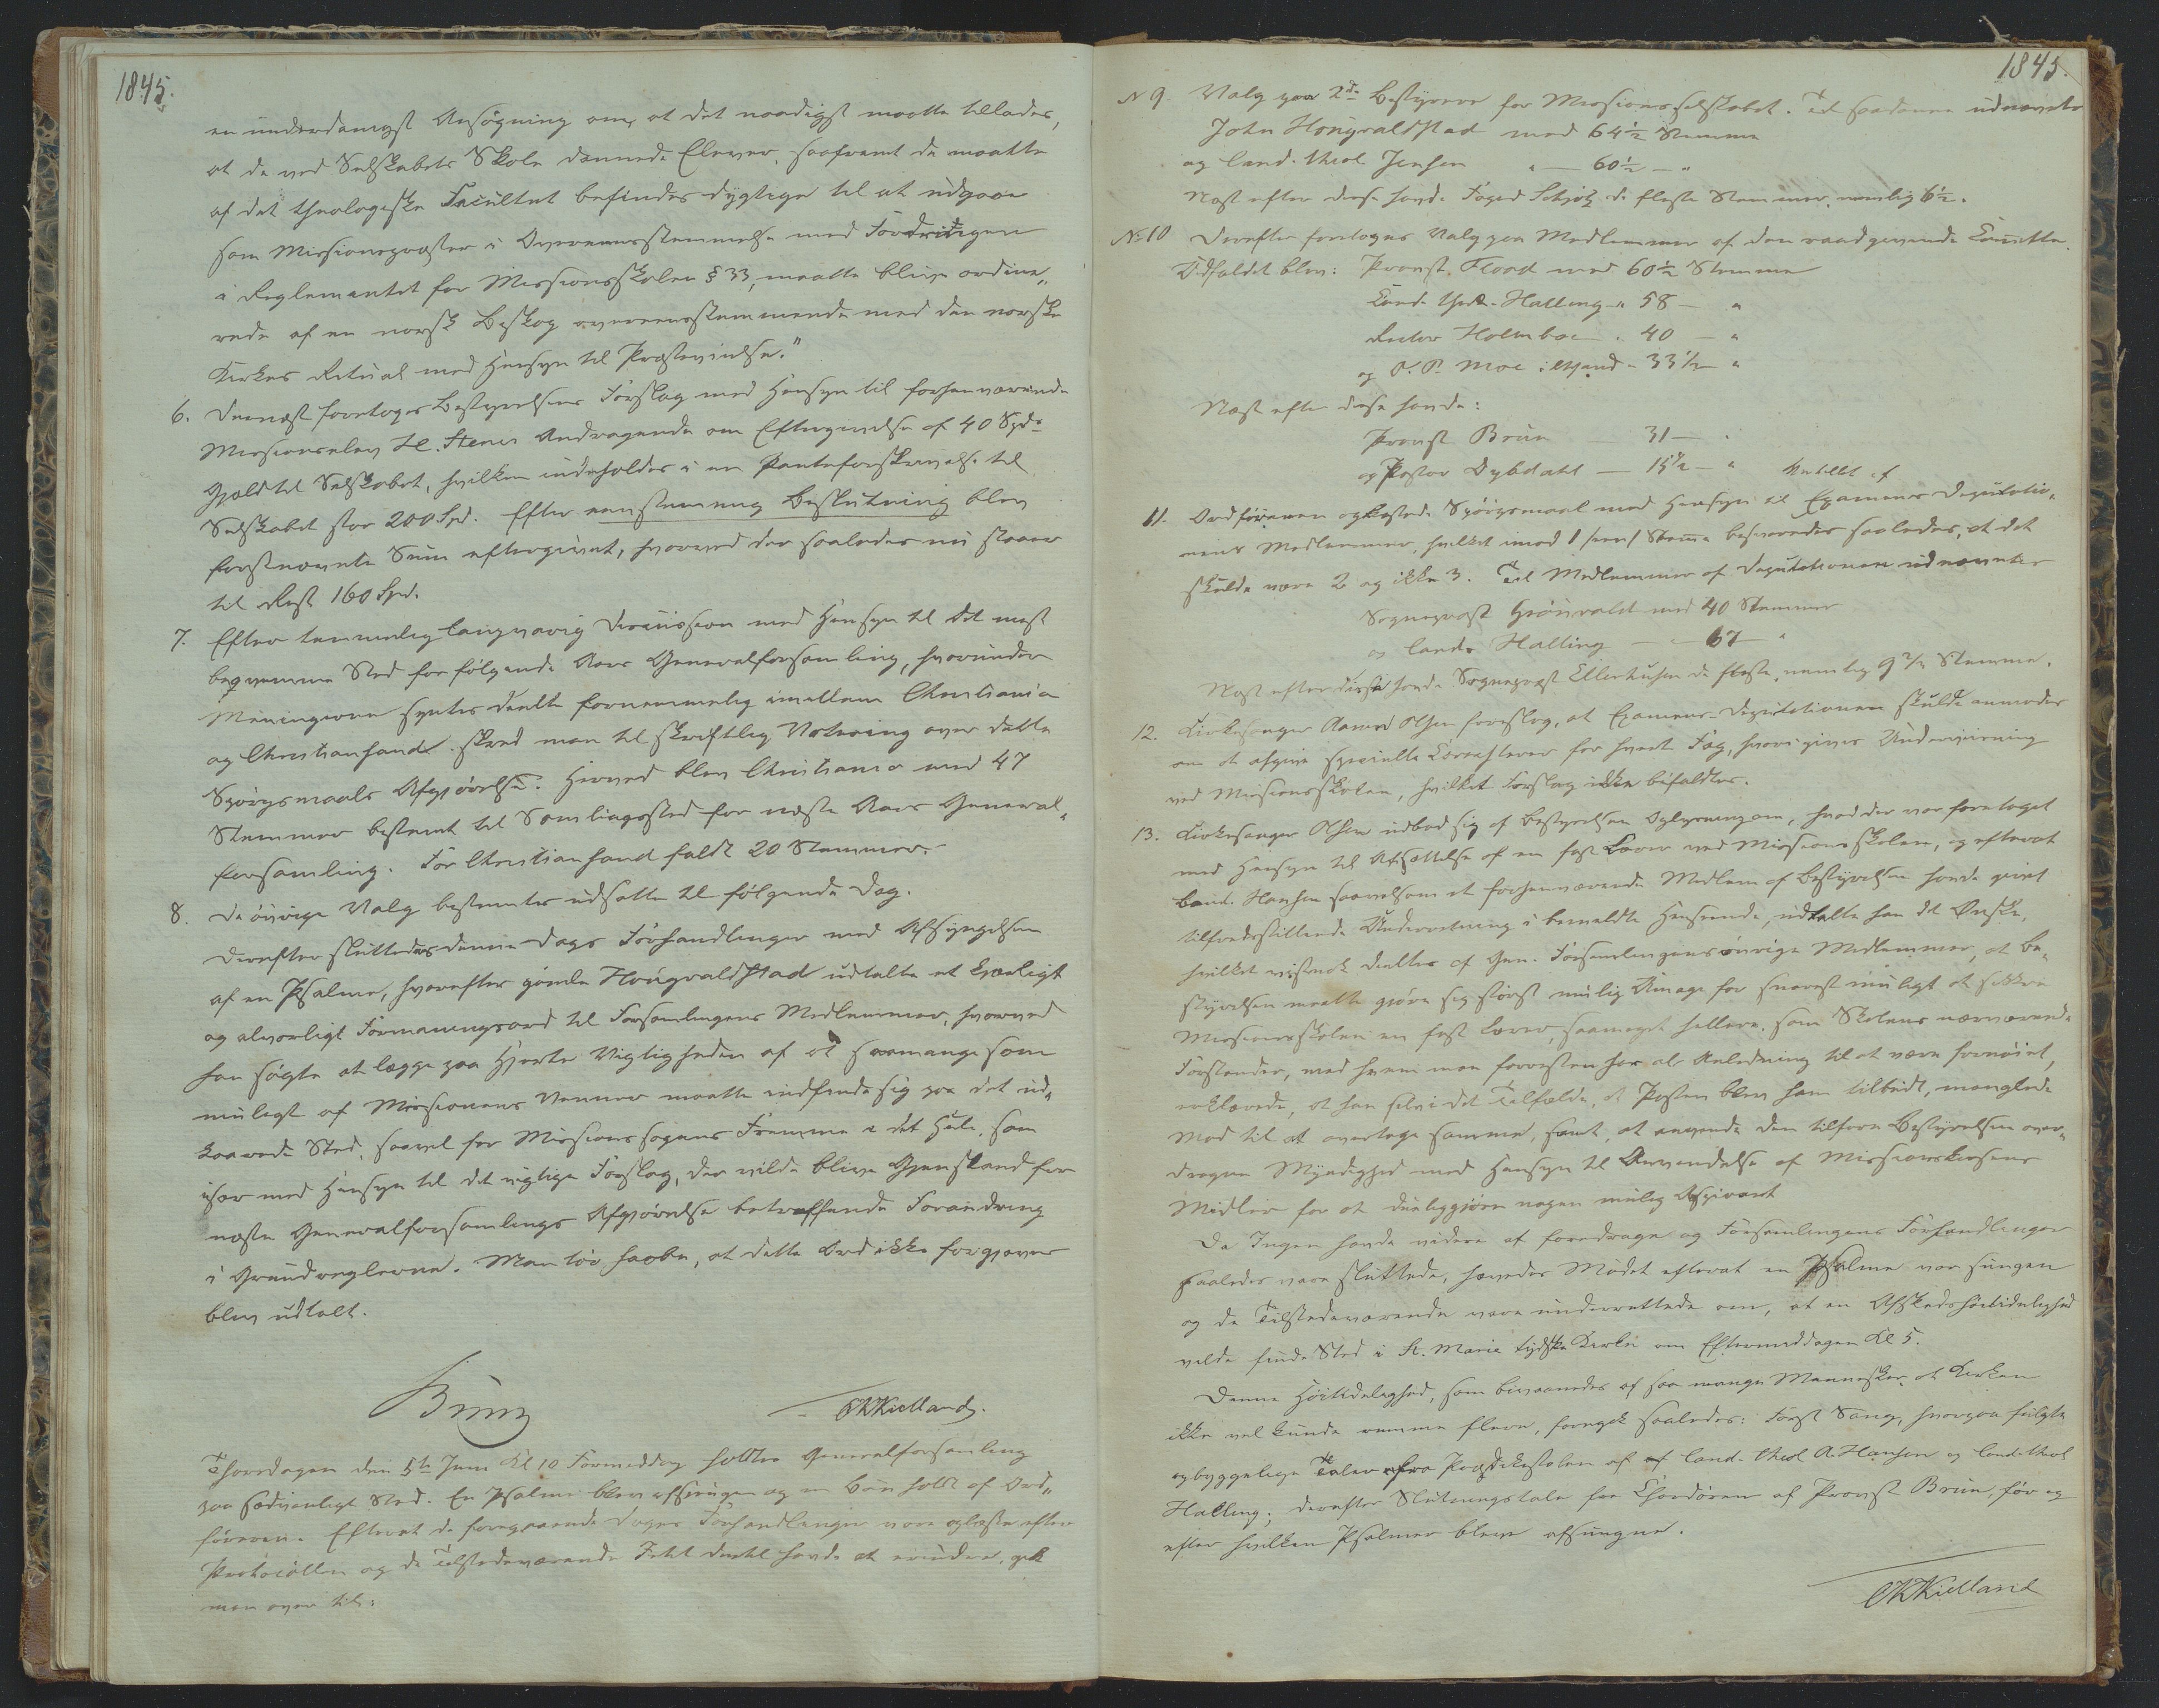 1845.
en underdanigst Ansøgning om, at det naadigst maatte tillades,
at de ved Selskabets Skole dannede Elever, saafremt de maatte
af det theologiske Facultet befindes dygtige til at udgaae
som Missionspræster i Overeensstemmelse med Fordringen
i Reglementet for Missionsskolen § 33, maatte blive ordine„
rede af en norsk Biskop overeensstemmende med den norske
Kirkes Ritual med Hensyn til Præstevielse."
6. Dernæst foretoges Bestyrelsens Forslag med Hensyn til forhenværende
Missionselev H. Stenes Andragende om Eftergivelse af 40 Spd.
Gjæld til Selskabet, hvilken indeholdes i en Panteforskrivelse til
Selskabet stor 200 Spd. Efter eenstemmig Beslutning blev
førstnævnte Sum eftergivet, hvorved der saaledes nu staaer
til Rest 160 Spd.
7. Efter temmelig langvarig Discussion med Hensyn til det mest
beqvemme Sted for følgende Aars Generalforsamling, hvorunder
Meningerne syntes deelte fornemmelig imellem Christiania
og Christiansand, skred man til skriftlig Votering over dette
Spørgsmaals Afgjørelse. Herved blev Christiania med 47
Stemmer bestemt til Samlingssted for næste Aars General„
forsamling. For Christiansand faldt 20 Stemmer.
8. De øvrige Valg bestemtes udsatte til følgende Dag.
Derefter sluttedes denne Dags Forhandlinger med Afsyngelsen
af en Psalme, hvorefter gamle Haugvaldstad udtalte et kjærligt
og alvorligt Formaningsord til Forsamlingens Medlemmer, hvorved
han søgte at lægge paa Hjerte Vigtigheden af at saamange som
muligt af Missionens Venner maatte indfinde sig paa det ud„
kaarede Sted, saavel for Missionssagens Fremme i det Hele, som
især med Hensyn til det vigtige Forslag, der vilde blive Gjenstand for
næste Generalforsamlings Afgjørelse betræffende Forandring
i Grundreglerne. Man tør haabe, at dette Ord ikke forgjæves
blev udtalt.
Bruun
Kielland.
Thorsdagen den 5te Juni Kl 10 Formiddag holdtes Generalforsamling
paa sædvanligt Sted. En Psalme blev afsungen og en Bøn holdt af Ord„
føreren. Efterat de foregaaende Dages Forhandlinger vare oplæste efter
Protocollen og de Tilstedeværende Intet dertil havde at erindre, gik
man over til:
1845.
N 9. Valg paa 2de Bestyrere for Missionsselskabet. Til saadanne udnævntes
John Haugvaldstad med 64½ Stemme
og Cand. theol. Jensen " — 60½ — "
Næst efter disse havde Foged Schiøtz de fleste Stemmer, nemlig 6½.
No 10 Derefter foretoges Valg paa Medlemmer af den raadgivende Comitte.
Udfaldet blev: Provst Flood med 60½ Stemme
Cand. theol. Halling " 58 — "
Rector Holmboe " 40 — "
og P. P. Moe i " 33½ "
Næst efter disse havde:
Provst Bruun — 31 — "
og Pastor Dybdahl — 15½ — "
11. Ordføreren opkastede Spørgsmaal med Hensyn til Antallet af Examens Deputatio„
nens Medlemmer, hvilket imod 1 /een/ Stemme besvaredes saaledes, at det
skulde være 2 og ikke 3. Til Medlemmer af Deputationen udnævntes
Sognepræst Grønvold med 40 Stemmer
og Cand. Halling — " 67 — "
Næst efter disse havde Sognepræst Ellerhusen de fleste, nemlig 9½ Stemme.
12. Kirkesanger Olsen foreslog, at Examens-Deputationen skulde anmodes
om at afgive specielle Characterer for hvert Fag, hvori gives Underviisning
ved Missionsskolen, hvilket Forslag ikke bifaldtes.
13. Kirkesanger Olsen udbad sig af Bestyrelsen Oplysning om, hvad der var foretaget
med Hensyn til Ansættelse af en fast Lærer ved Missionsskolen, og efterat
Cand. Hansen saavelsom et forhenværende Medlem af Bestyrelsen havde givet
tilfredsstillende Underretning i bemeldte Henseende, udtalte han det Ønske,
hvilket vistnok deeltes af Gen. Forsamlingens øvrige Medlemmer, at Be„
styrelsen maatte gjøre sig størst mulig Umage for snarest muligt at sikkre
Missionsskolen en fast Lærer, saameget hellere, som Skolens nærværende
Forstander, med hvem man forresten har al Anledning til at være fornøiet,
erklærede, at han selv i det Tilfælde, at Posten blev ham tilbudt, manglede
Mod til at overtage samme, samt, at anvende den tilforn Bestyrelsen over„
dragne Myndighed med Hensyn til Anvendelse af Missionskassens
Midler for at dueliggjøre nogen mulig Aspirant
Da Ingen havde videre at foredrage og Forsamlingens Forhandlinger
saaledes vare sluttede, hævedes Mødet efterat en Psalme var sungen
og de Tilstedeværende vare underrettede om, at en Afskedshøitidelighed
vilde finde Sted i St. Marie tydske Kirke om Eftermiddagen Kl 5.
Denne Høitidelighed, som bivaanedes af saa mange Mennesker, at Kirken
ikke vel kunde rumme flere, foregik saaledes: Først Sang, hvorpaa fulgte
opbyggelige Taler fra Prædikestolen af Cand. theol A. Hansen og Cand. theol
Halling; derefter Slutningstale fra Chordøren af Provst Bruun, før og
efter hvilken Psalmer bleve afsungne.
Kielland